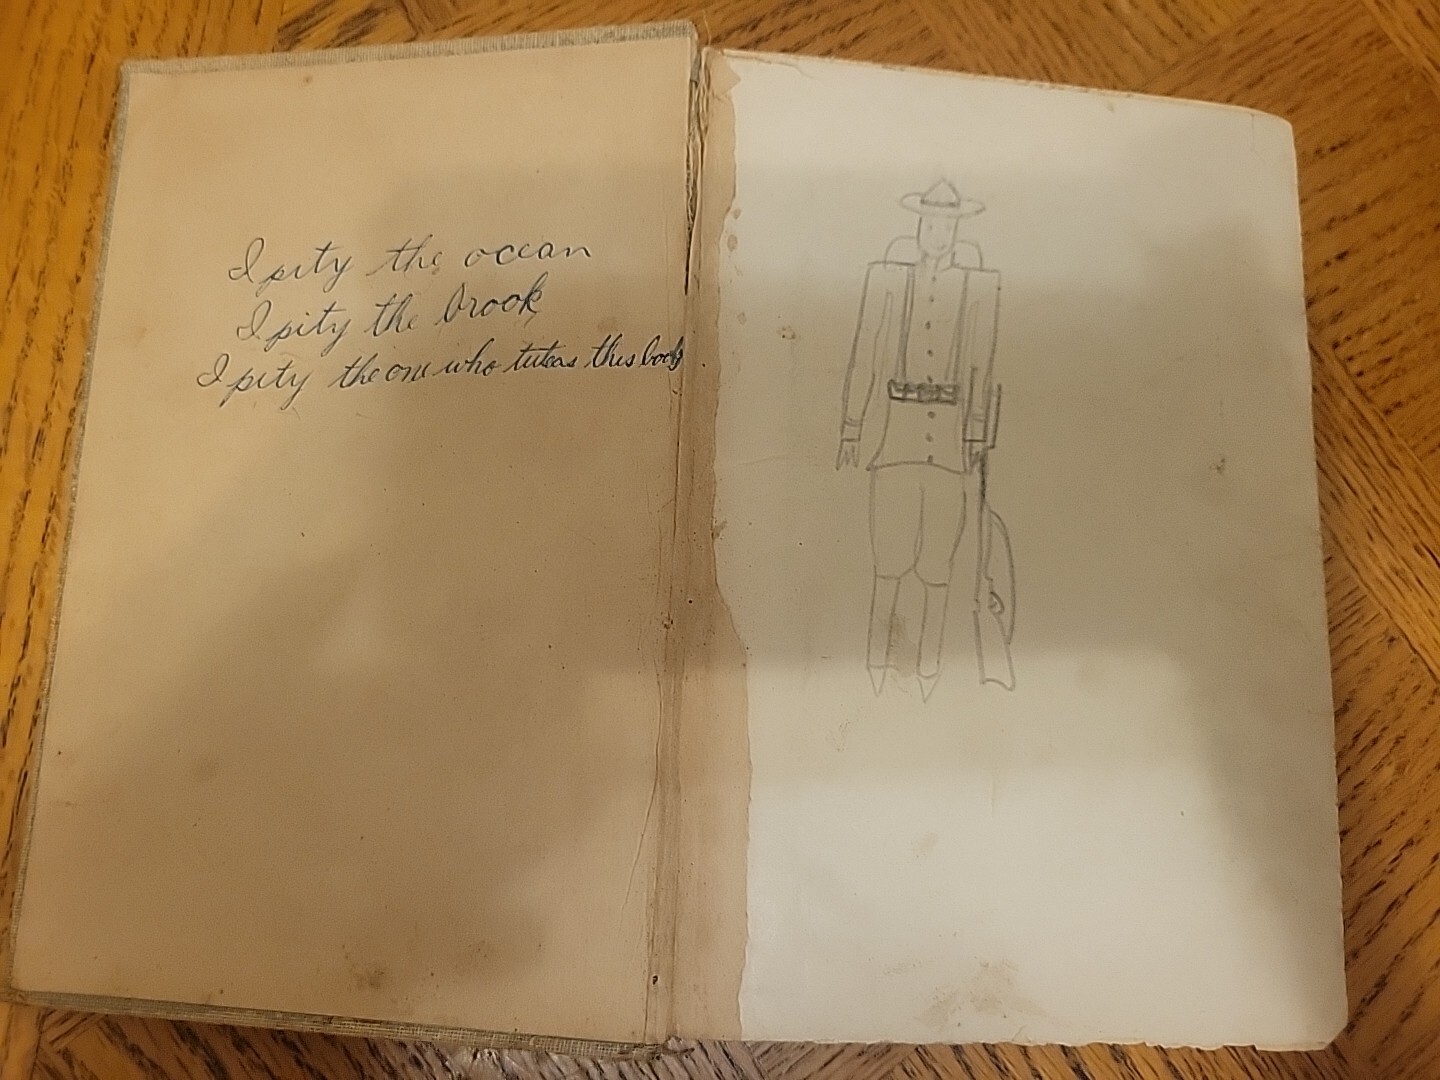 I pity the ocean
I pity the brook
I pity the one who tutors this book